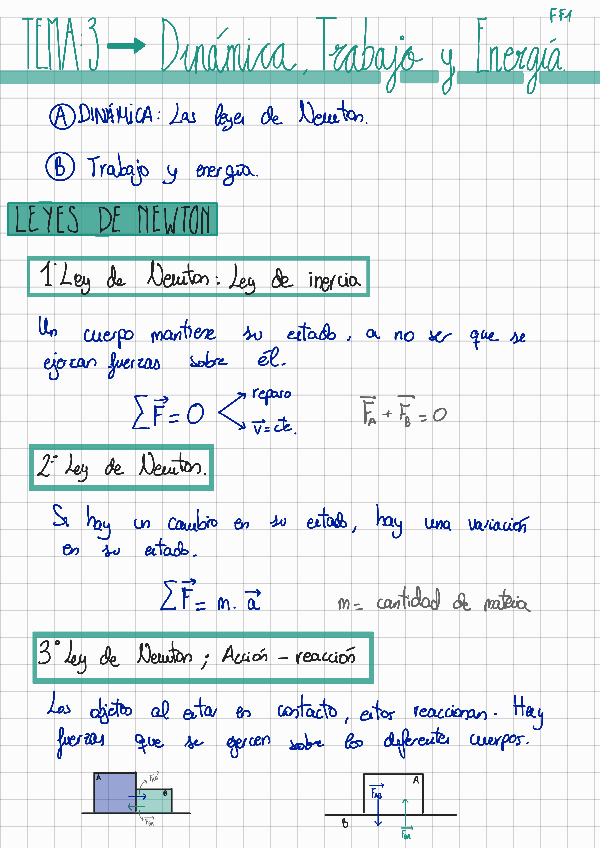 FF1
TEMA 3 → Dinámica, Trabajo y Energía.
Ⓐ DINÁMICA: Las leyes de Newton.
Ⓑ Trabajo y energía.
LEYES DE NEWTON
1ª Ley de Newton: Ley de inercia
Un cuerpo mantiene su estado, a no ser que se
ejerzan fuerzas sobre él.
reparo
∑F⃗ = 0
F⃗A + F⃗B = 0
v⃗ = cte.
2ª Ley de Newton.
Si hay un cambio en su estado, hay una variación
en su estado.
∑F⃗ = m. a⃗
m = cantidad de materia
3ª Ley de Newton; Acción – reacción
Los objetos al estar en contacto, estos reaccionan. Hay
fuerzas que se ejercen sobre los diferentes cuerpos.
A
F⃗AB
B
F⃗BA
A
F⃗AB
B
F⃗BA